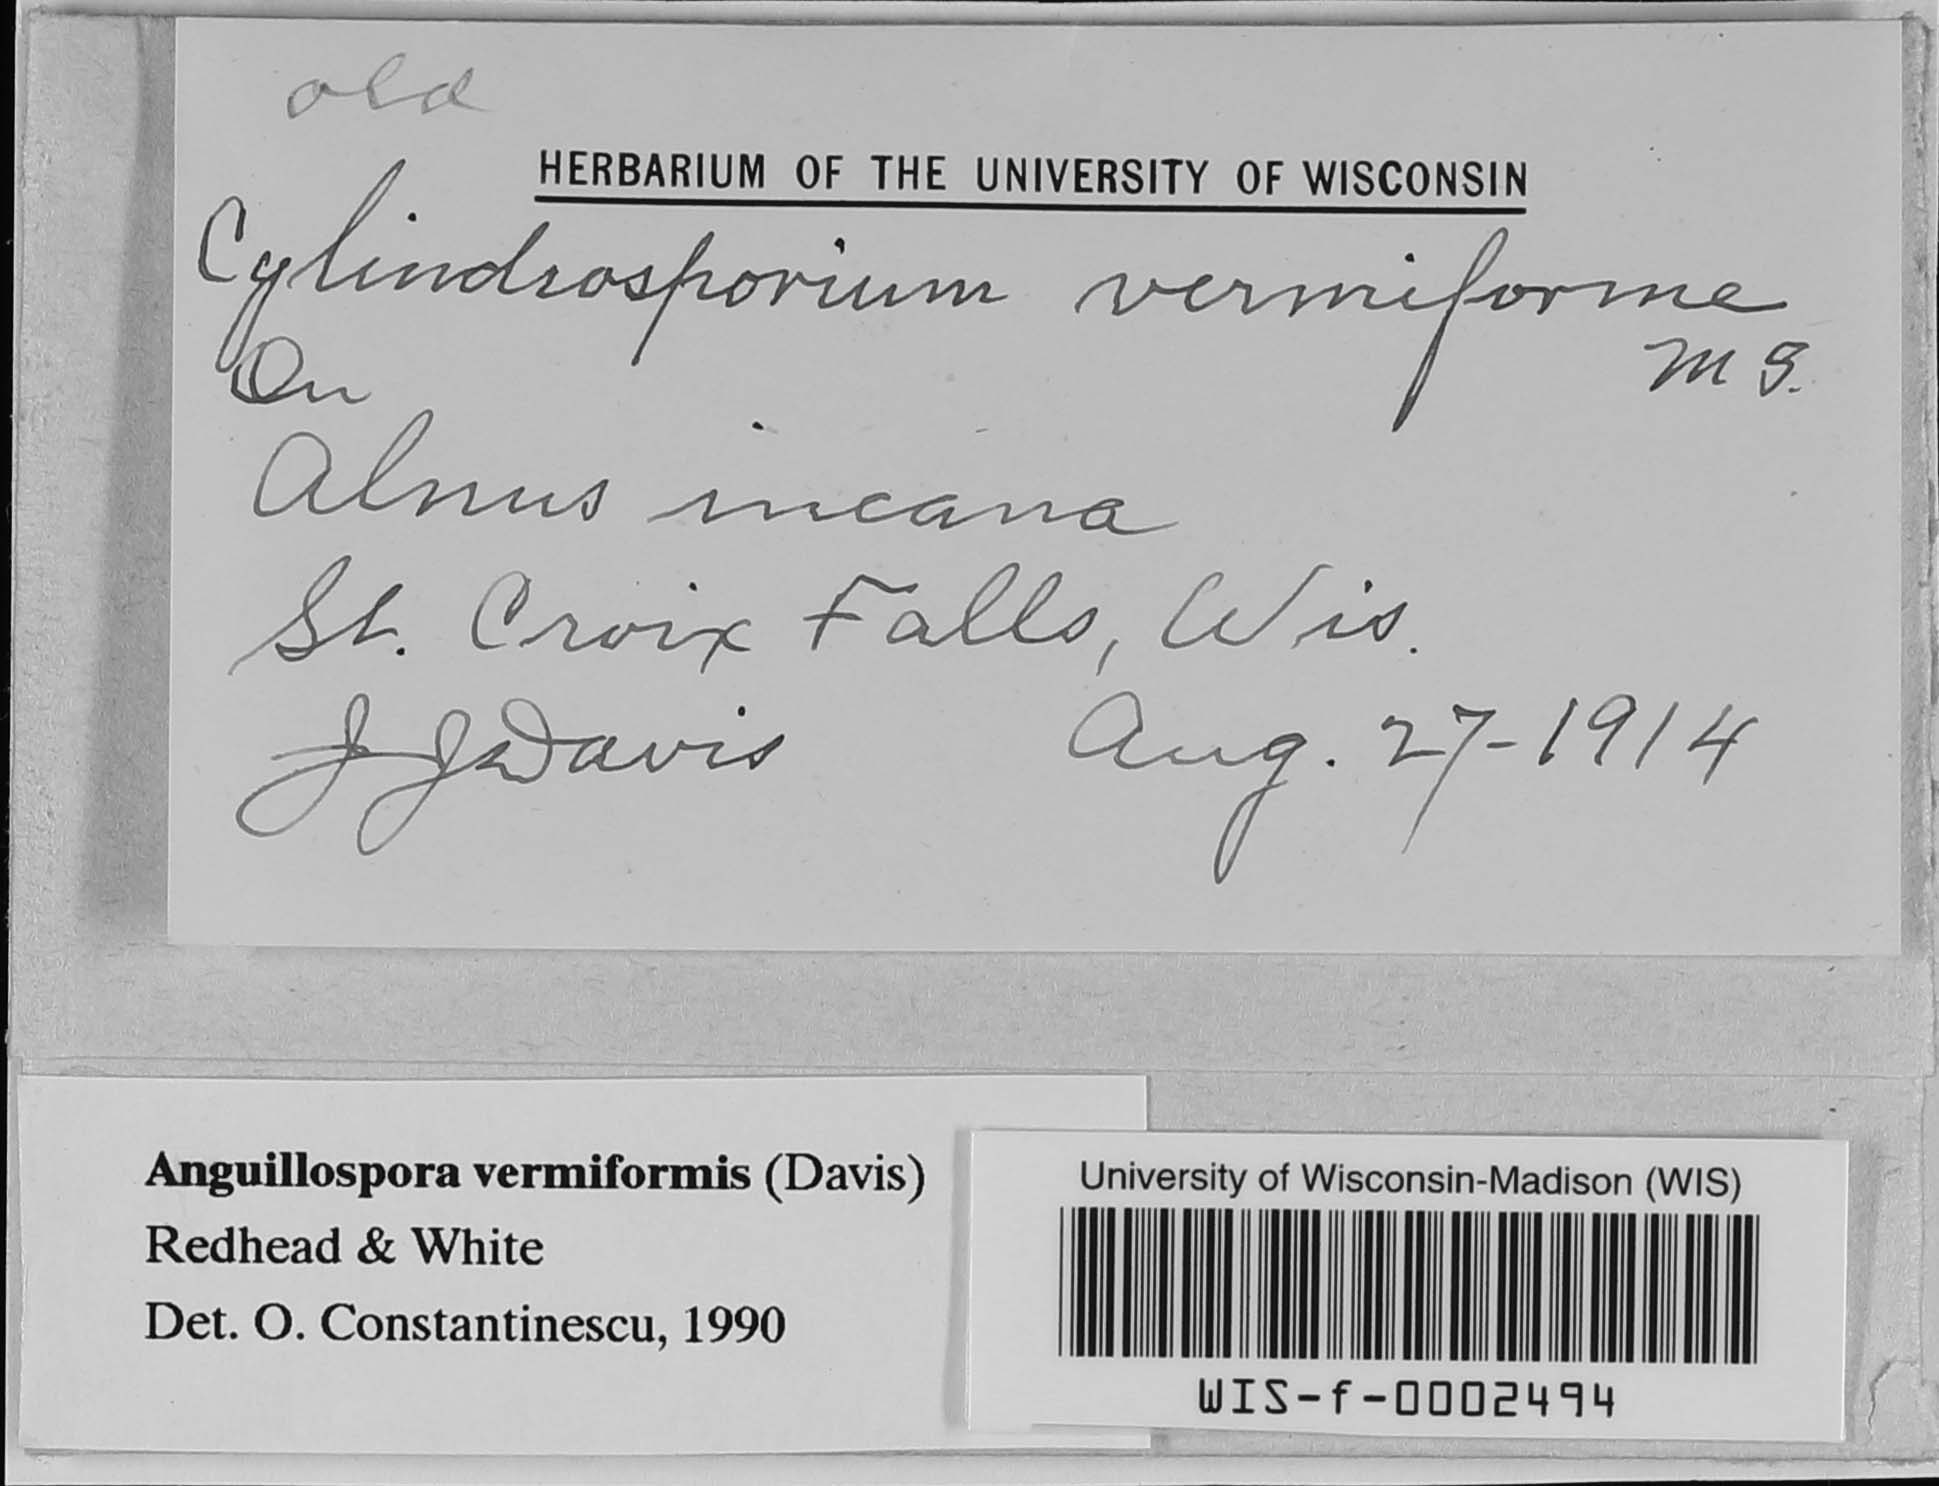 old
HERBARIUM OF THE UNIVERSITY OF WISCONSIN
Cylindrosporium vermiforme
M S.
On
Alnus incana
St. Croix Falls, Wis.
J J Davis Aug. 27-1914
Anguillospora vermiformis (Davis)
Redhead & White
Det. O. Constantinescu, 1990
University of Wisconsin-Madison (WIS)
WIS-f-0002494